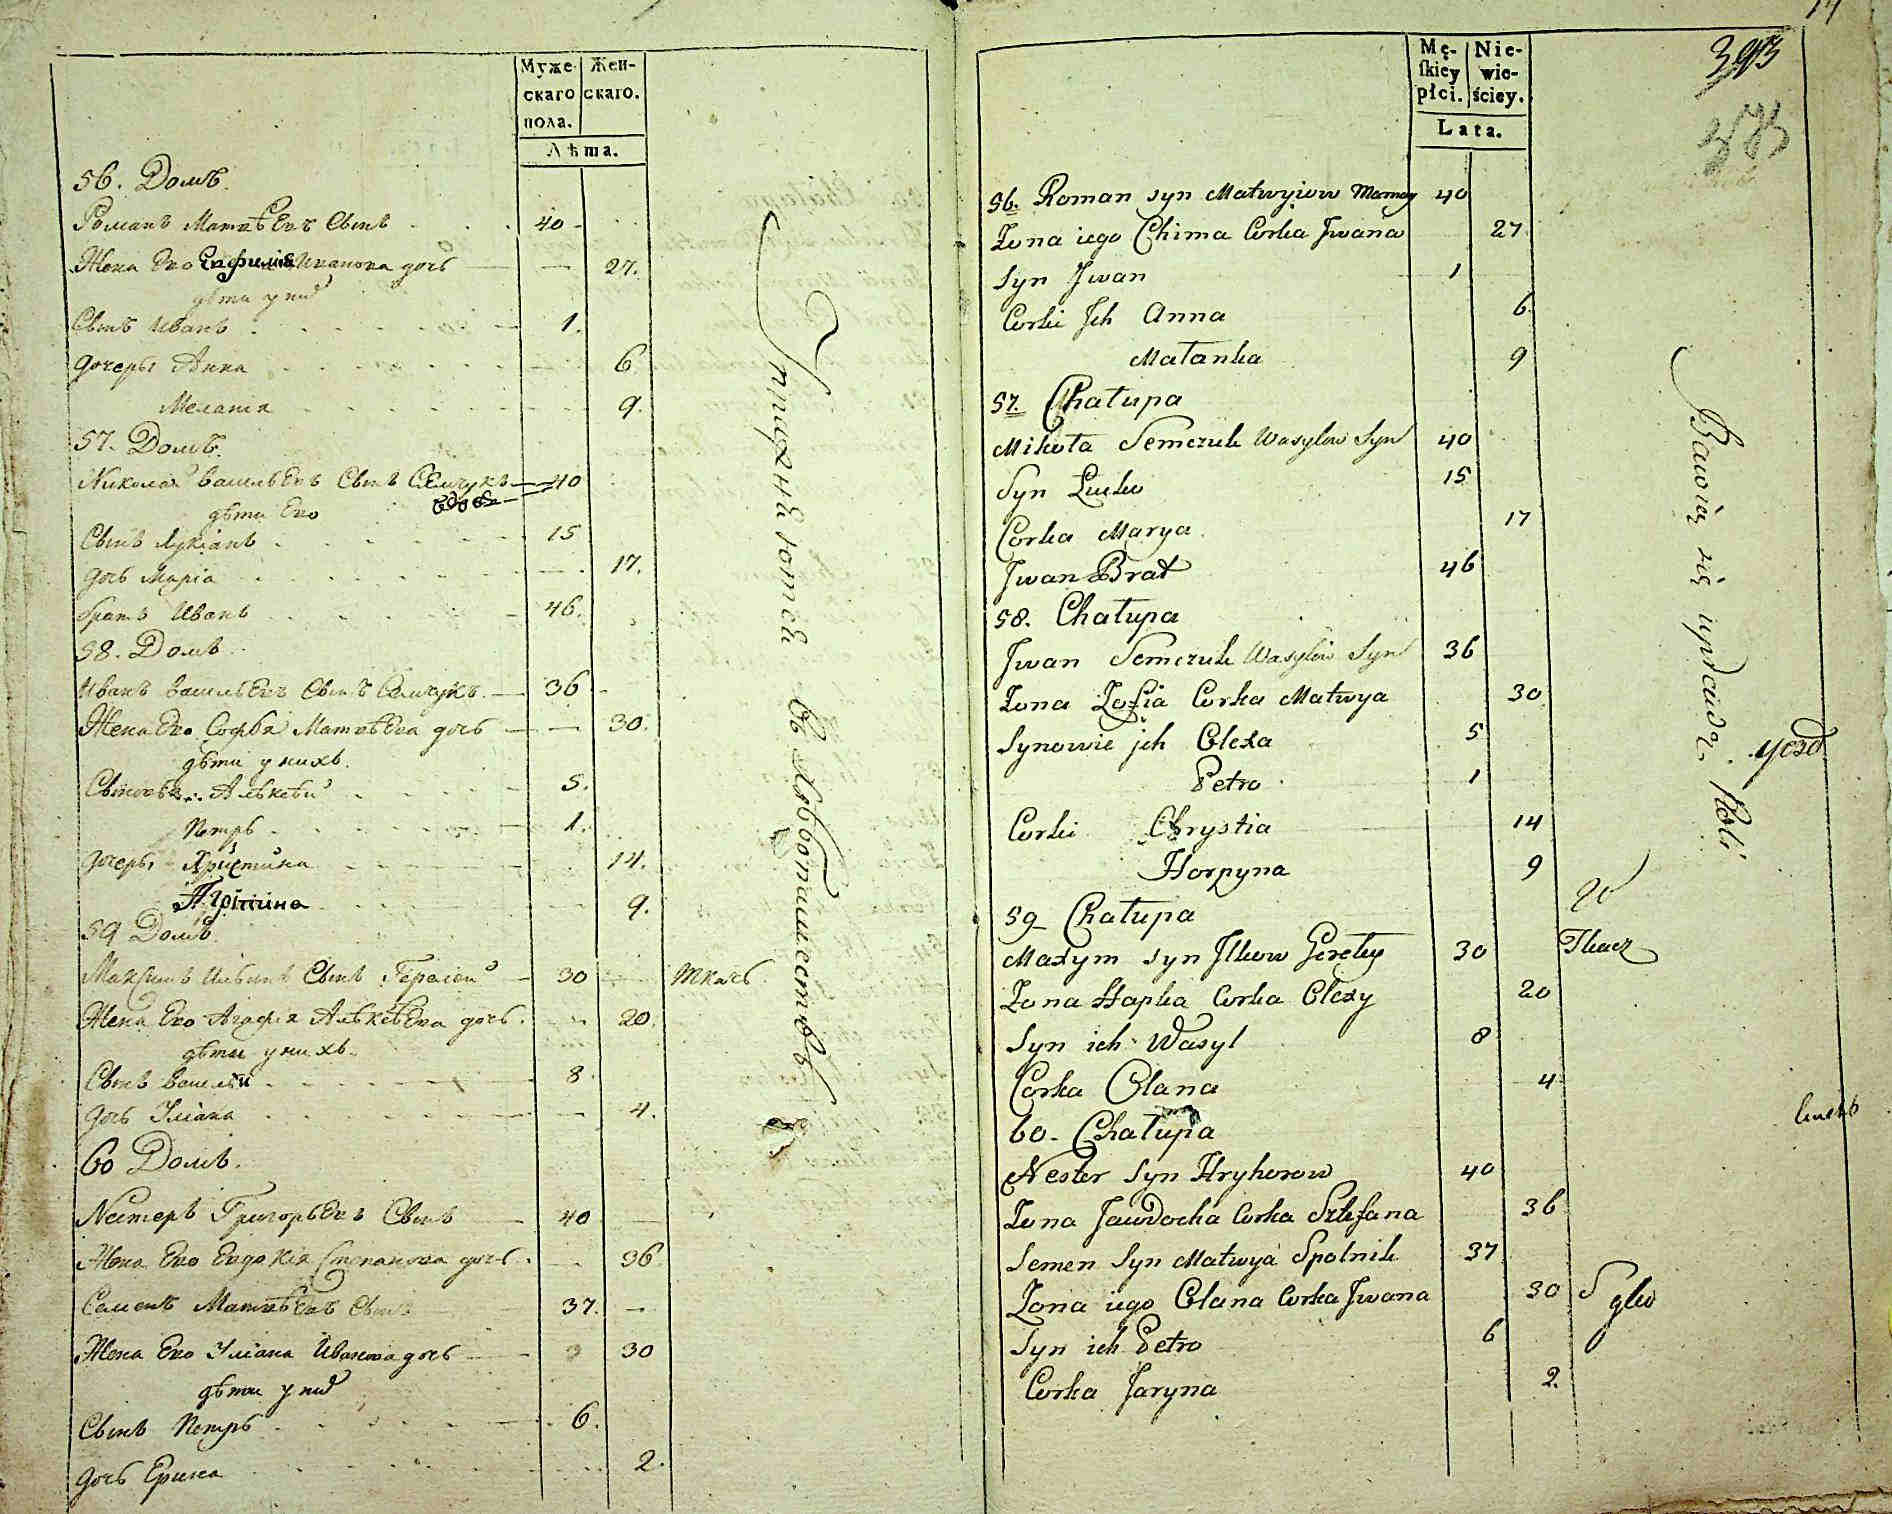 Муже-
скаго
пола.
Жен-
скаго.
Лѣта.
56. Домъ.
Романъ Матвѣевъ Сынъ 40
Жена Его Евфимія Иванова дочь 27.
дѣти у них
Сынъ Иванъ 1.
дочеры Анна 6
Мелания 9.
57. Домъ.
Николай Васильевъ Сынъ Семчукъ 40
дѣти Его вдовъ
Сынъ Лукіанъ 15
дочь Марія 17.
братъ Иванъ 46.
58. Домъ
Иванъ Васильевъ Сынъ Семчукъ 36
Жена Его Софья Матвѣева дочь 30.
дѣти у нихъ.
Сыновья Алѣксѣй 5.
Петръ 1.
дочеры Христина 14.
Агрипина 9.
59 Домъ
Максимъ Ильинъ Сынъ 30 ткачь
Жена Его Агафія Алѣксѣева дочь. 20.
дѣти у нихъ.
Сынъ Василій 8
дочь Уліана 4.
60 Домъ.
Нестеръ Григорьевъ Сынъ 40
Жена Его Евдокія Степанова дочь. 36
Семенъ Матвѣевъ Сынъ 37.
Жена Его Уліана Иванова дочь 30
дѣти у них
Сынъ Петръ 6.
дочь Ерина 2.
въ хлѣбопашествѣ
Mę-
ſkiey
płci.
Nie-
wie-
ściey.
Lata.
393
56. Roman syn Matwyiow 40
Zona iego Chima Corka Jwana 27
Syn Jwan 1
Corki Jch Anna 6
Małanka 9
57. Chałupa
Mikoła Semczuk Wasylow Syn 40
Syn Łucko 15
Corka Marya 17
Jwan Brat 46
58. Chałupa
Jwan Semczuk Wasylow Syn 36
Zona Zofia Corka Matwya 30
Synowie jch Olexa 5
Petro 1
Corki Chrystia 14
Horpyna 9
59 Chałupa
Maxym syn Jlkow 30 Tkacz
Zona Hapka Corka Olexy 20
Syn ich Wasyl 8
Corka Olana 4
60. Chałupa
Nester Syn Hryhorow 40
Zona Jawdocha Corka Sztefana 36
Semen Syn Matwya Spolnik 37
Zona iego Olana Corka Jwana 30
Syn ich Petro 6
Corka Jaryna 2.
Bawią się uprawą Roli